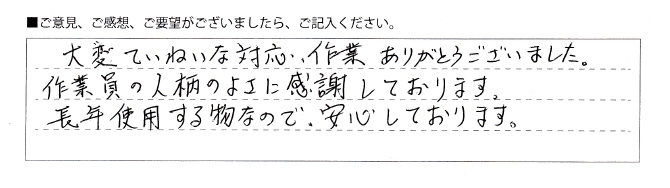 ■ご意見、ご感想、ご要望がございましたら、ご記入ください。
大変ていねいな対応、作業 ありがとうございました。
作業員の人柄のよさに感謝しております。
長年使用する物なので、安心しております。